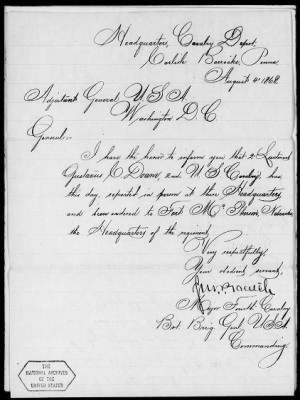 Headquarters, Cavalry Depot,
Carlisle Barracks, Penna
August 4" 1868
Adjutant General U.S.A.
Washington D.C.
General:
I have the honor to inform you that 2 Lieutenant
Gustavus C. Doane, 2nd U.S. Cavalry, has
this day, reported in person at these Headquarters
and been ordered to Fort McPherson Nebraska
the Headquarters of the regiment,
Very respectfully,
Your obedient servant,
Major Fourth Cavalry
Bvt. Brig Genl U.S.A.
Commanding
THE
NATIONAL ARCHIVES
OF THE
UNITED STATES